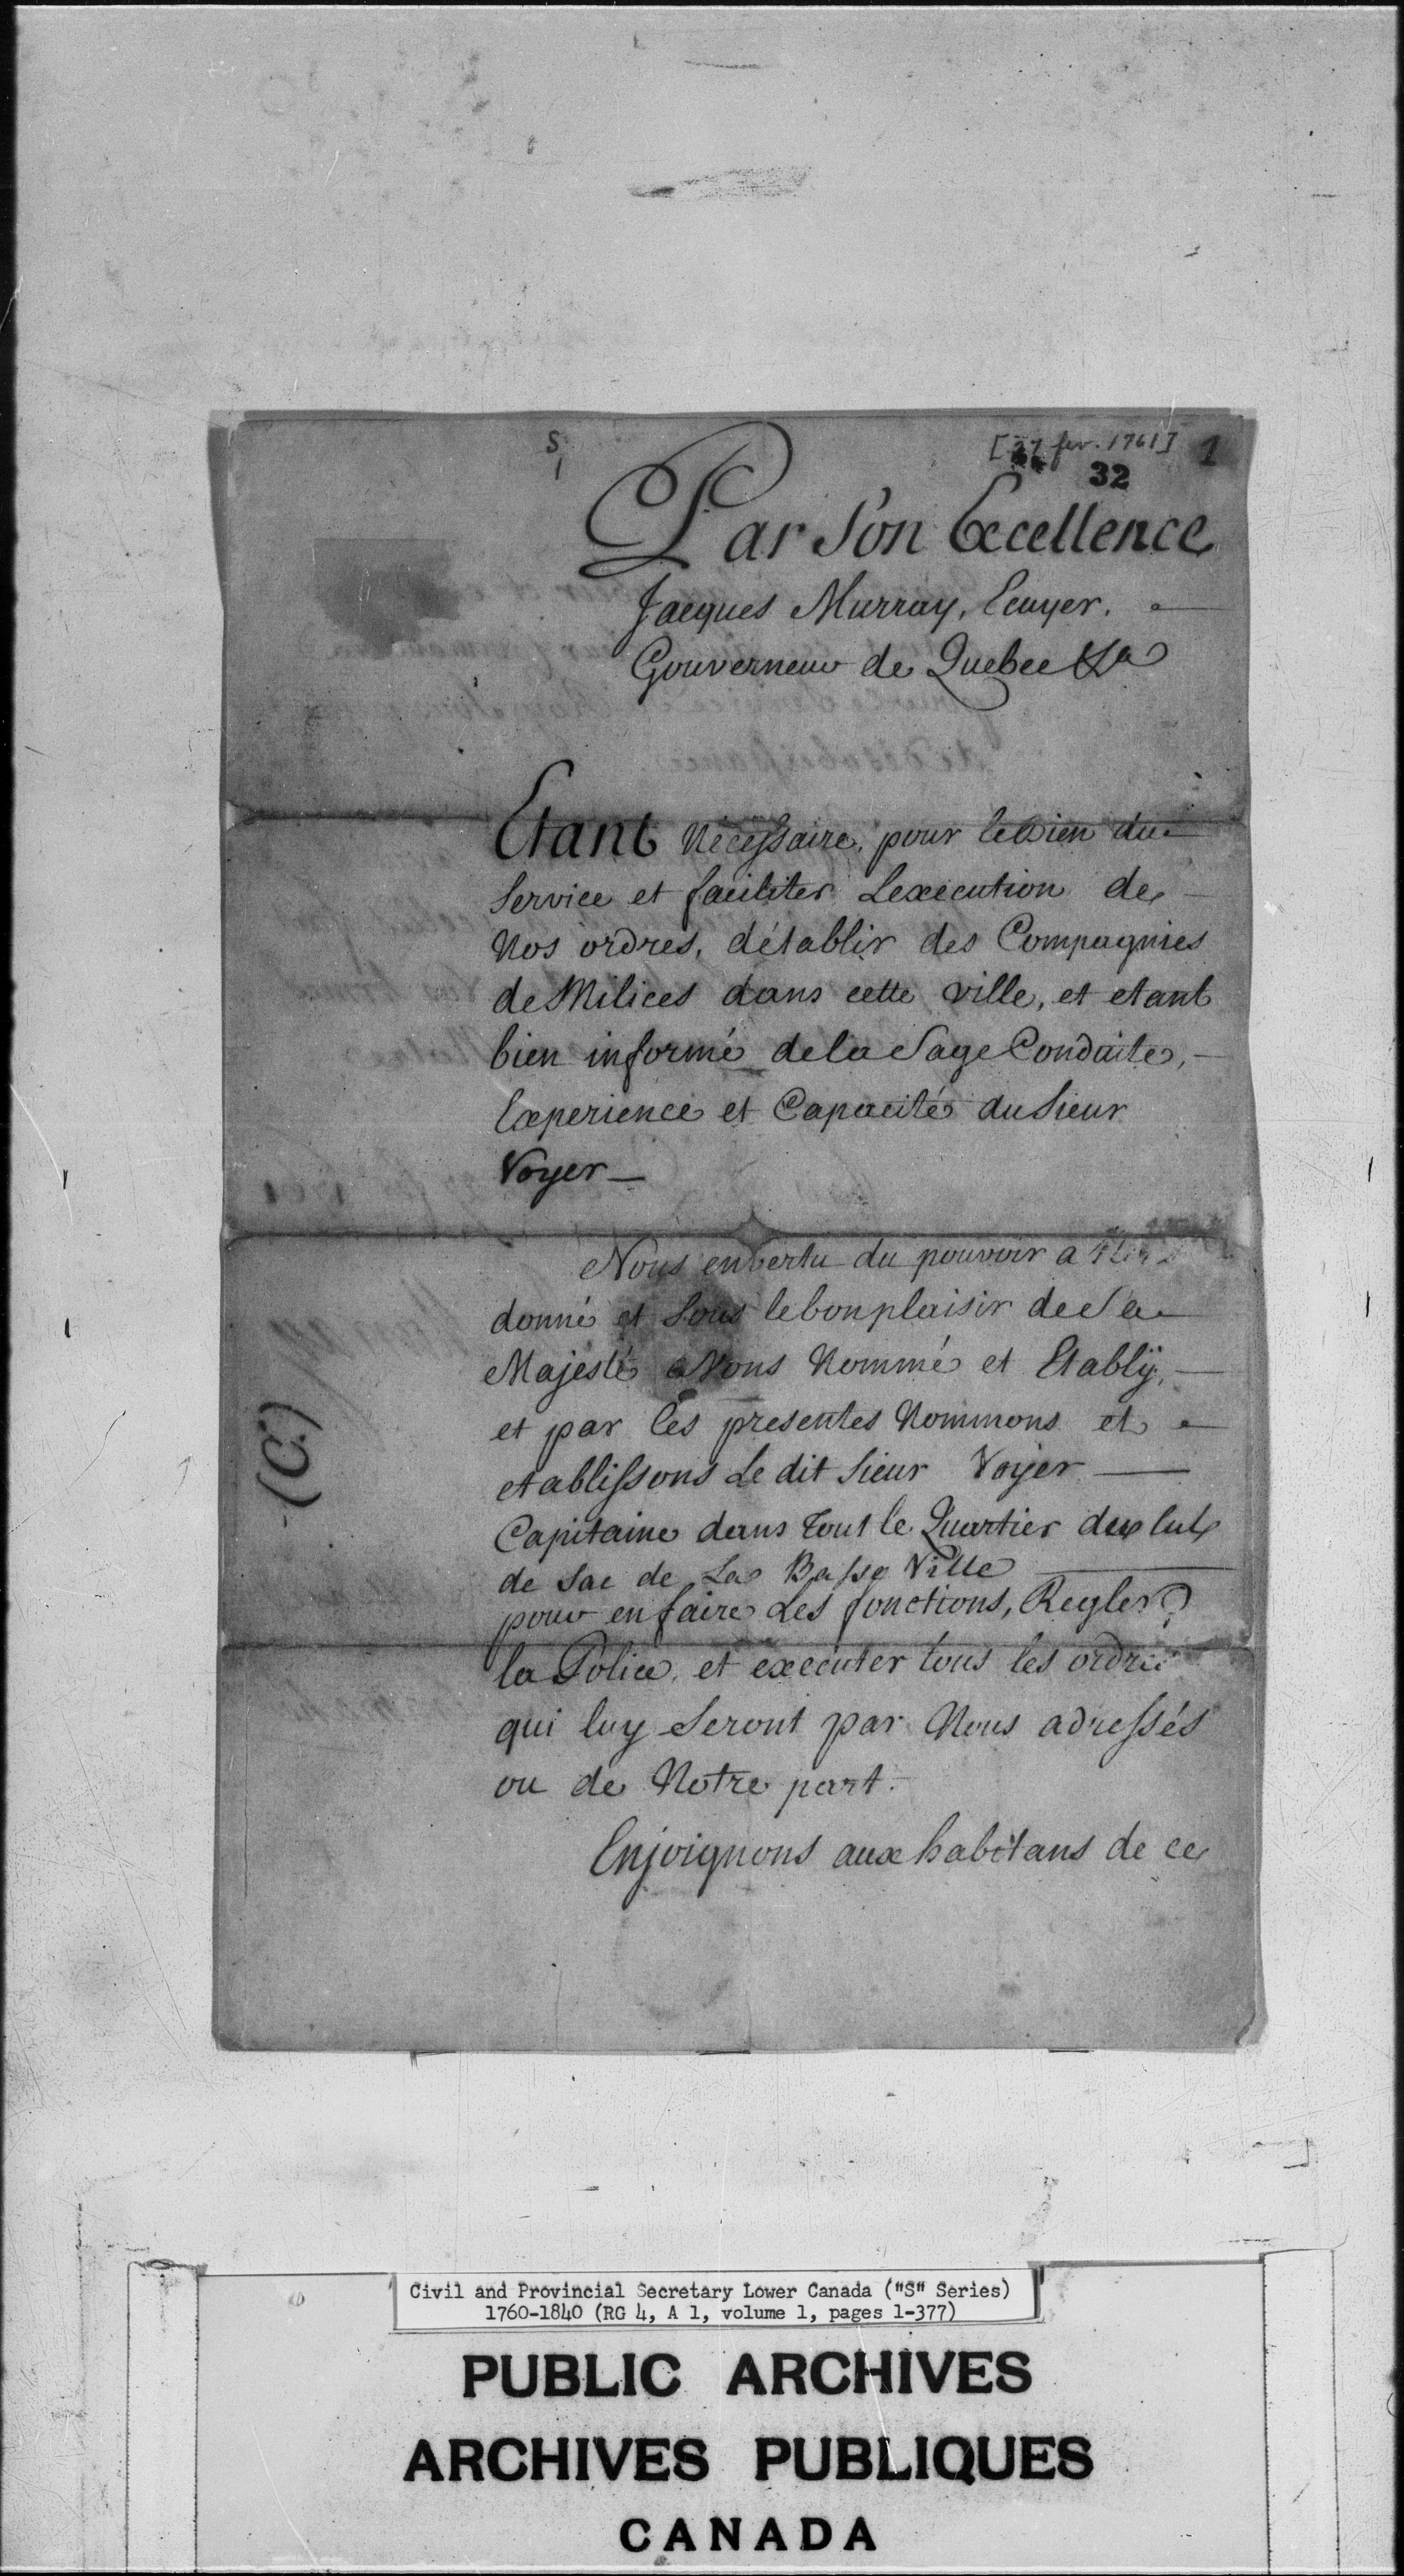 S
1
[27 fev. 1761] 1
32
Par Son Excellence
Jacques Murray, Ecuyer.
Gouverneur de Quebec &a
Etant Nécessaire, pour le Bien du
Service et faciliter L'exécution de
Nos ordres, d'établir des Compagnies
de Milices dans cette ville, et etant
bien informé de la Sage Conduite,
Experience et Capacité du Sieur
Voyer —
Nous en vertu du pouvoir a
donné et Sous le bon plaisir de Sa
Majesté avons Nommé et Etablÿ,
et par ces presentes Nommons et
etablissons Le dit Sieur Voyer —
Capitaine dans tout le Quartier du Cul
de Sac de La Basse Ville —
pour en faire Les fonctions, Regler
la Police, et executer tous les ordres
qui luy Seront par Nous adressés
ou de Notre part.
Enjoignons aux habitans de ce
(C.)
Civil and Provincial Secretary Lower Canada ("S" Series)
1760-1840 (RG 4, A 1, volume 1, pages 1-377)
PUBLIC ARCHIVES
ARCHIVES PUBLIQUES
CANADA